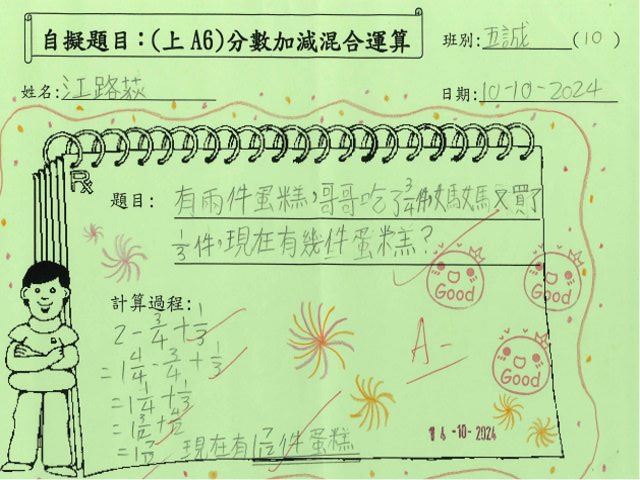 自擬題目：(上 A6)分數加減混合運算
班別: 五誠 (10)
姓名: 江路荻
日期: 10-10-2024
題目: 有兩件蛋糕，哥哥吃了3/4件，媽媽又買了
1/3件，現在有幾件蛋糕？
計算過程:
2 - 3/4 + 1/3
= 1 4/4 - 3/4 + 1/3
= 1 1/4 + 1/3
= 1 3/12 + 4/12
= 1 7/12
現在有1 7/12件蛋糕
Good
Good
Good
A-
14-10-2024